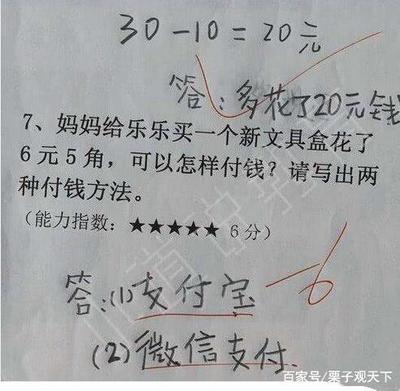 30-10=20元
答:多花了20元钱
7、妈妈给乐乐买一个新文具盒花了
6元5角，可以怎样付钱？请写出两
种付钱方法。
（能力指数：★★★★★ 6分）
答:(1)支付宝
-6
(2)微信支付
百家号/栗子观天下